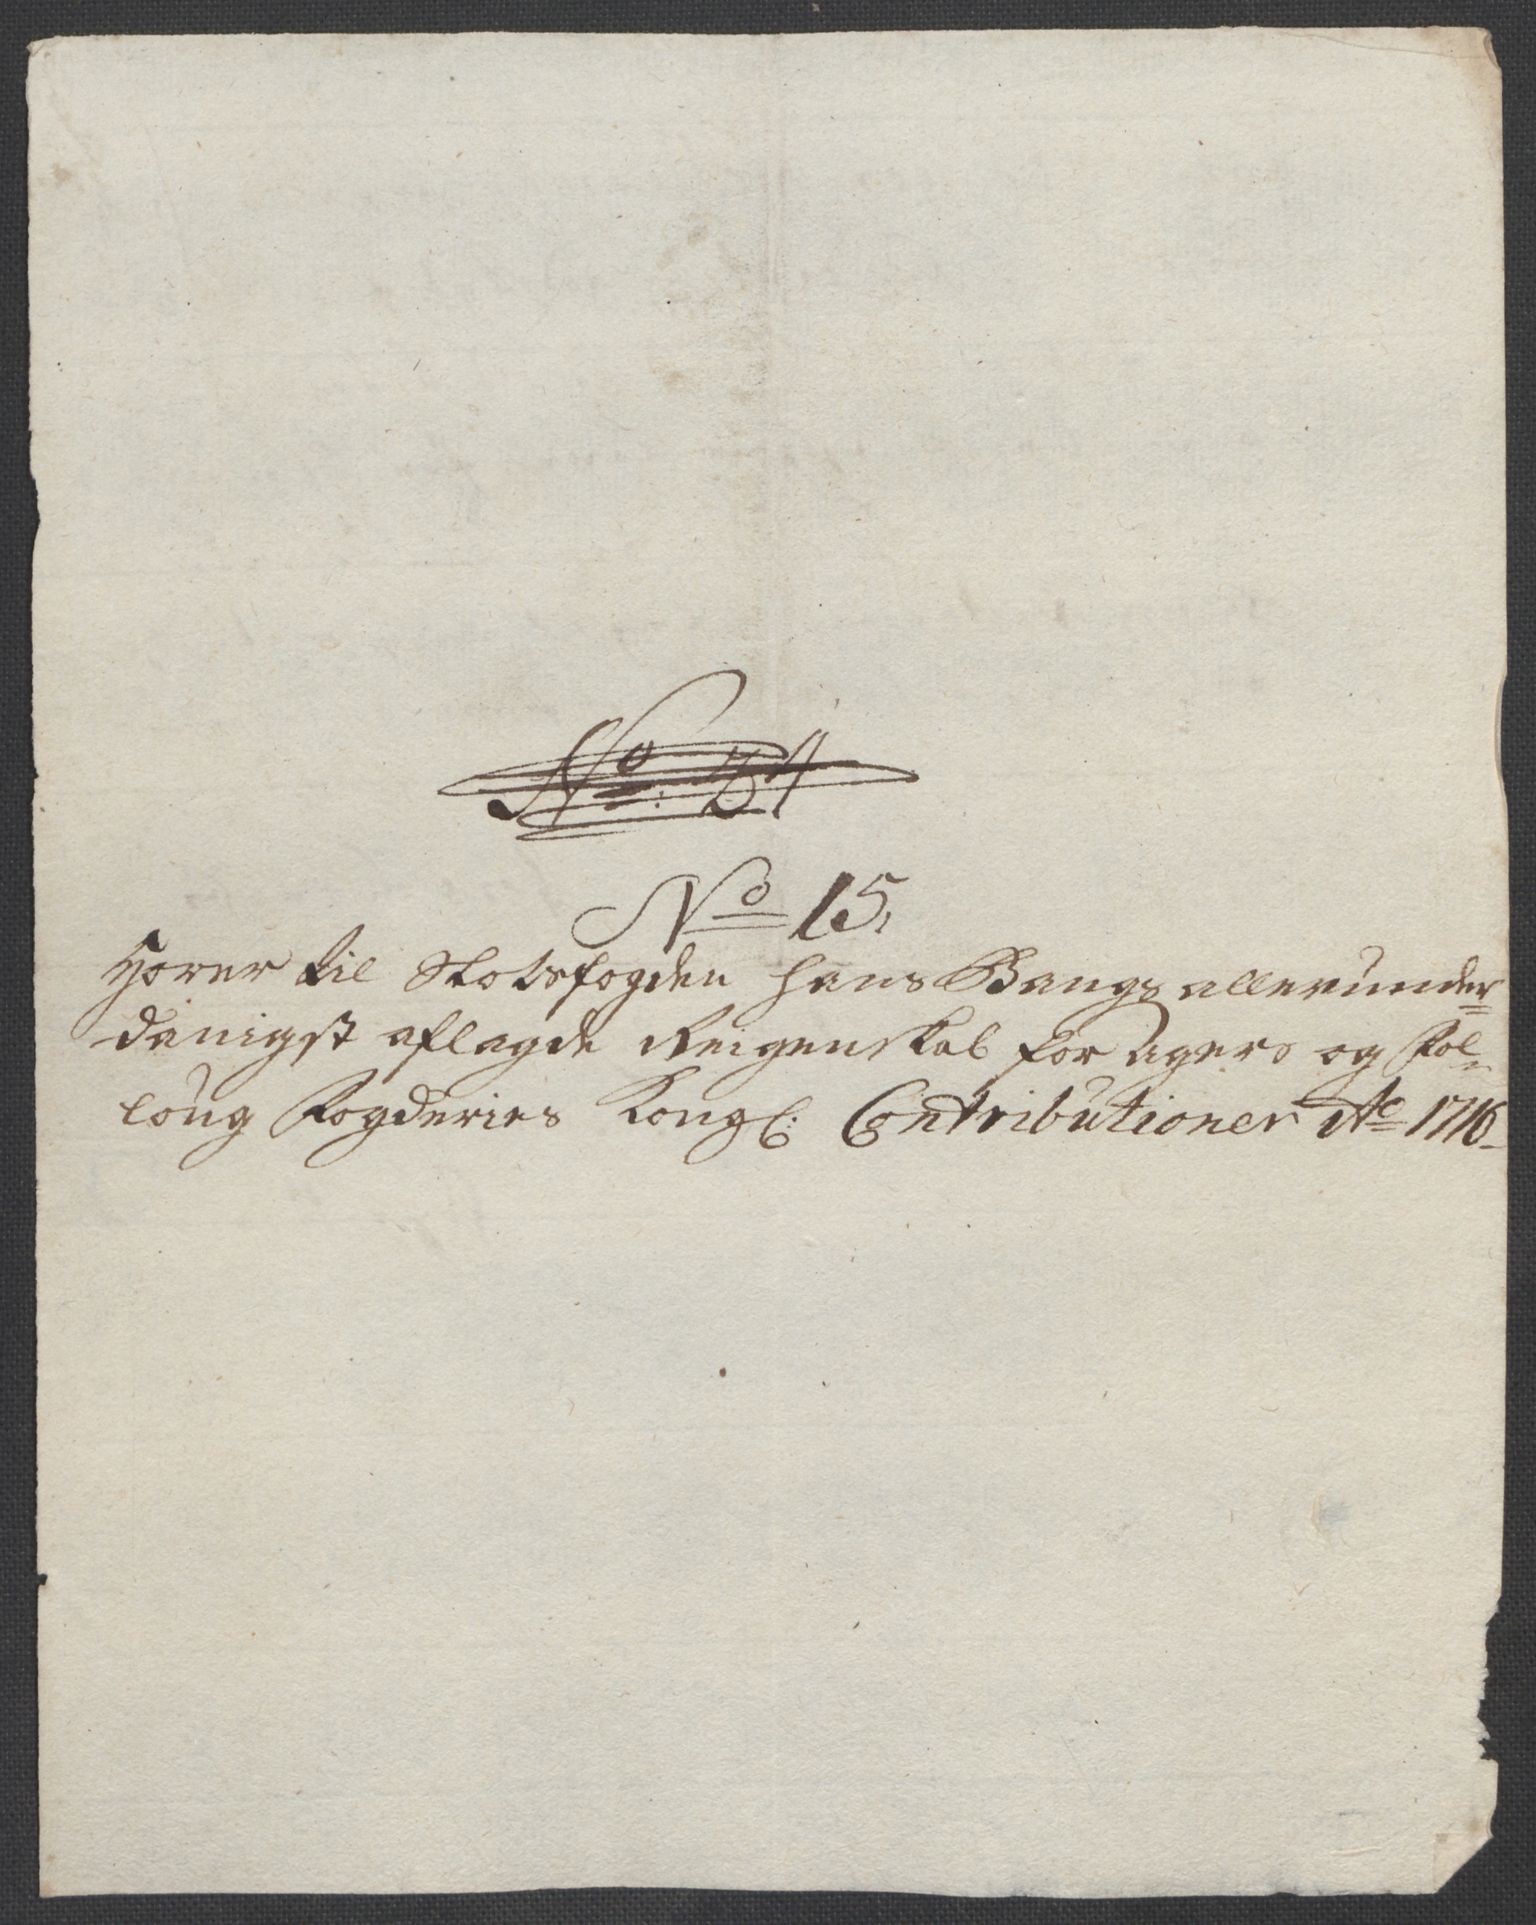 No: 54
No 15,
Hører til Slotsfogden Hans Bangs allerunder=
danigst aflagde Reigenskab for Agers og Fol=
loug Fogderies Kongl: Contributioner Ao 1716